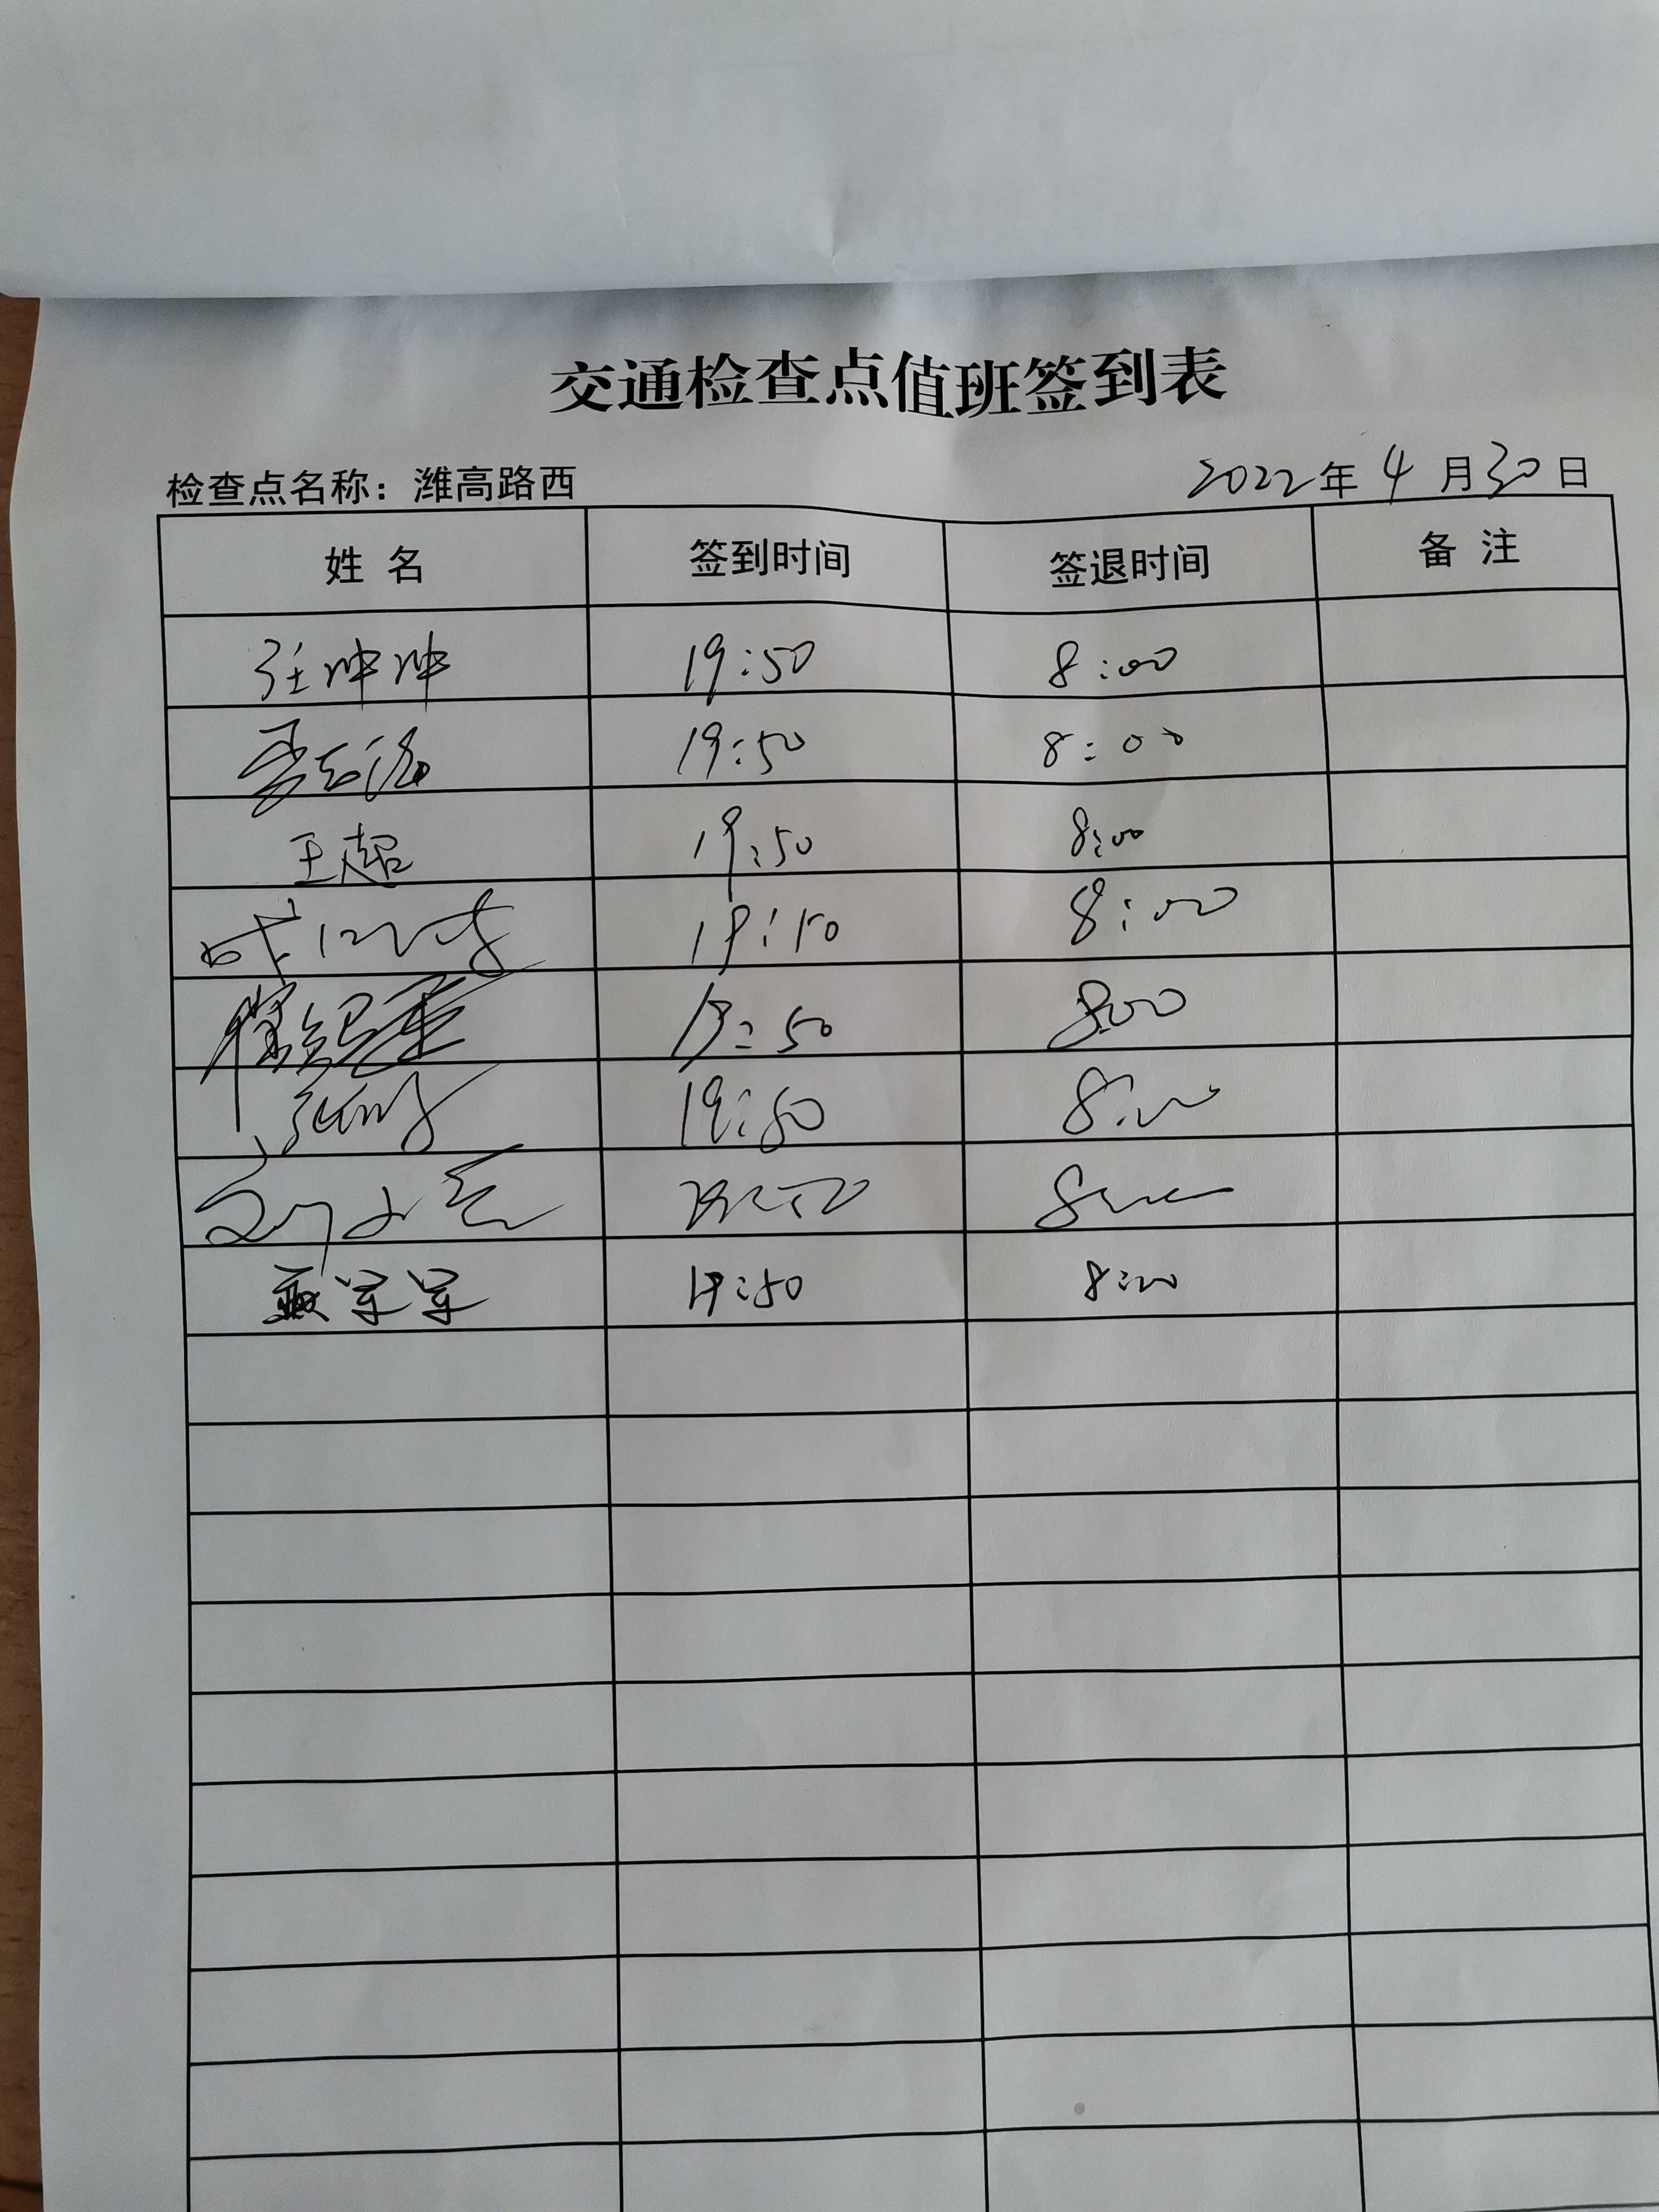 交通检查点值班签到表
检查点名称：潍高路西 2022年4月30日
姓 名 签到时间 签退时间 备 注
张坤坤 19:50 8:00
19:50 8:00
王超 19:50 8:00
19:50 8:00
19:50 8:00
19:50 8:00
8:00
军军 19:50 8:00